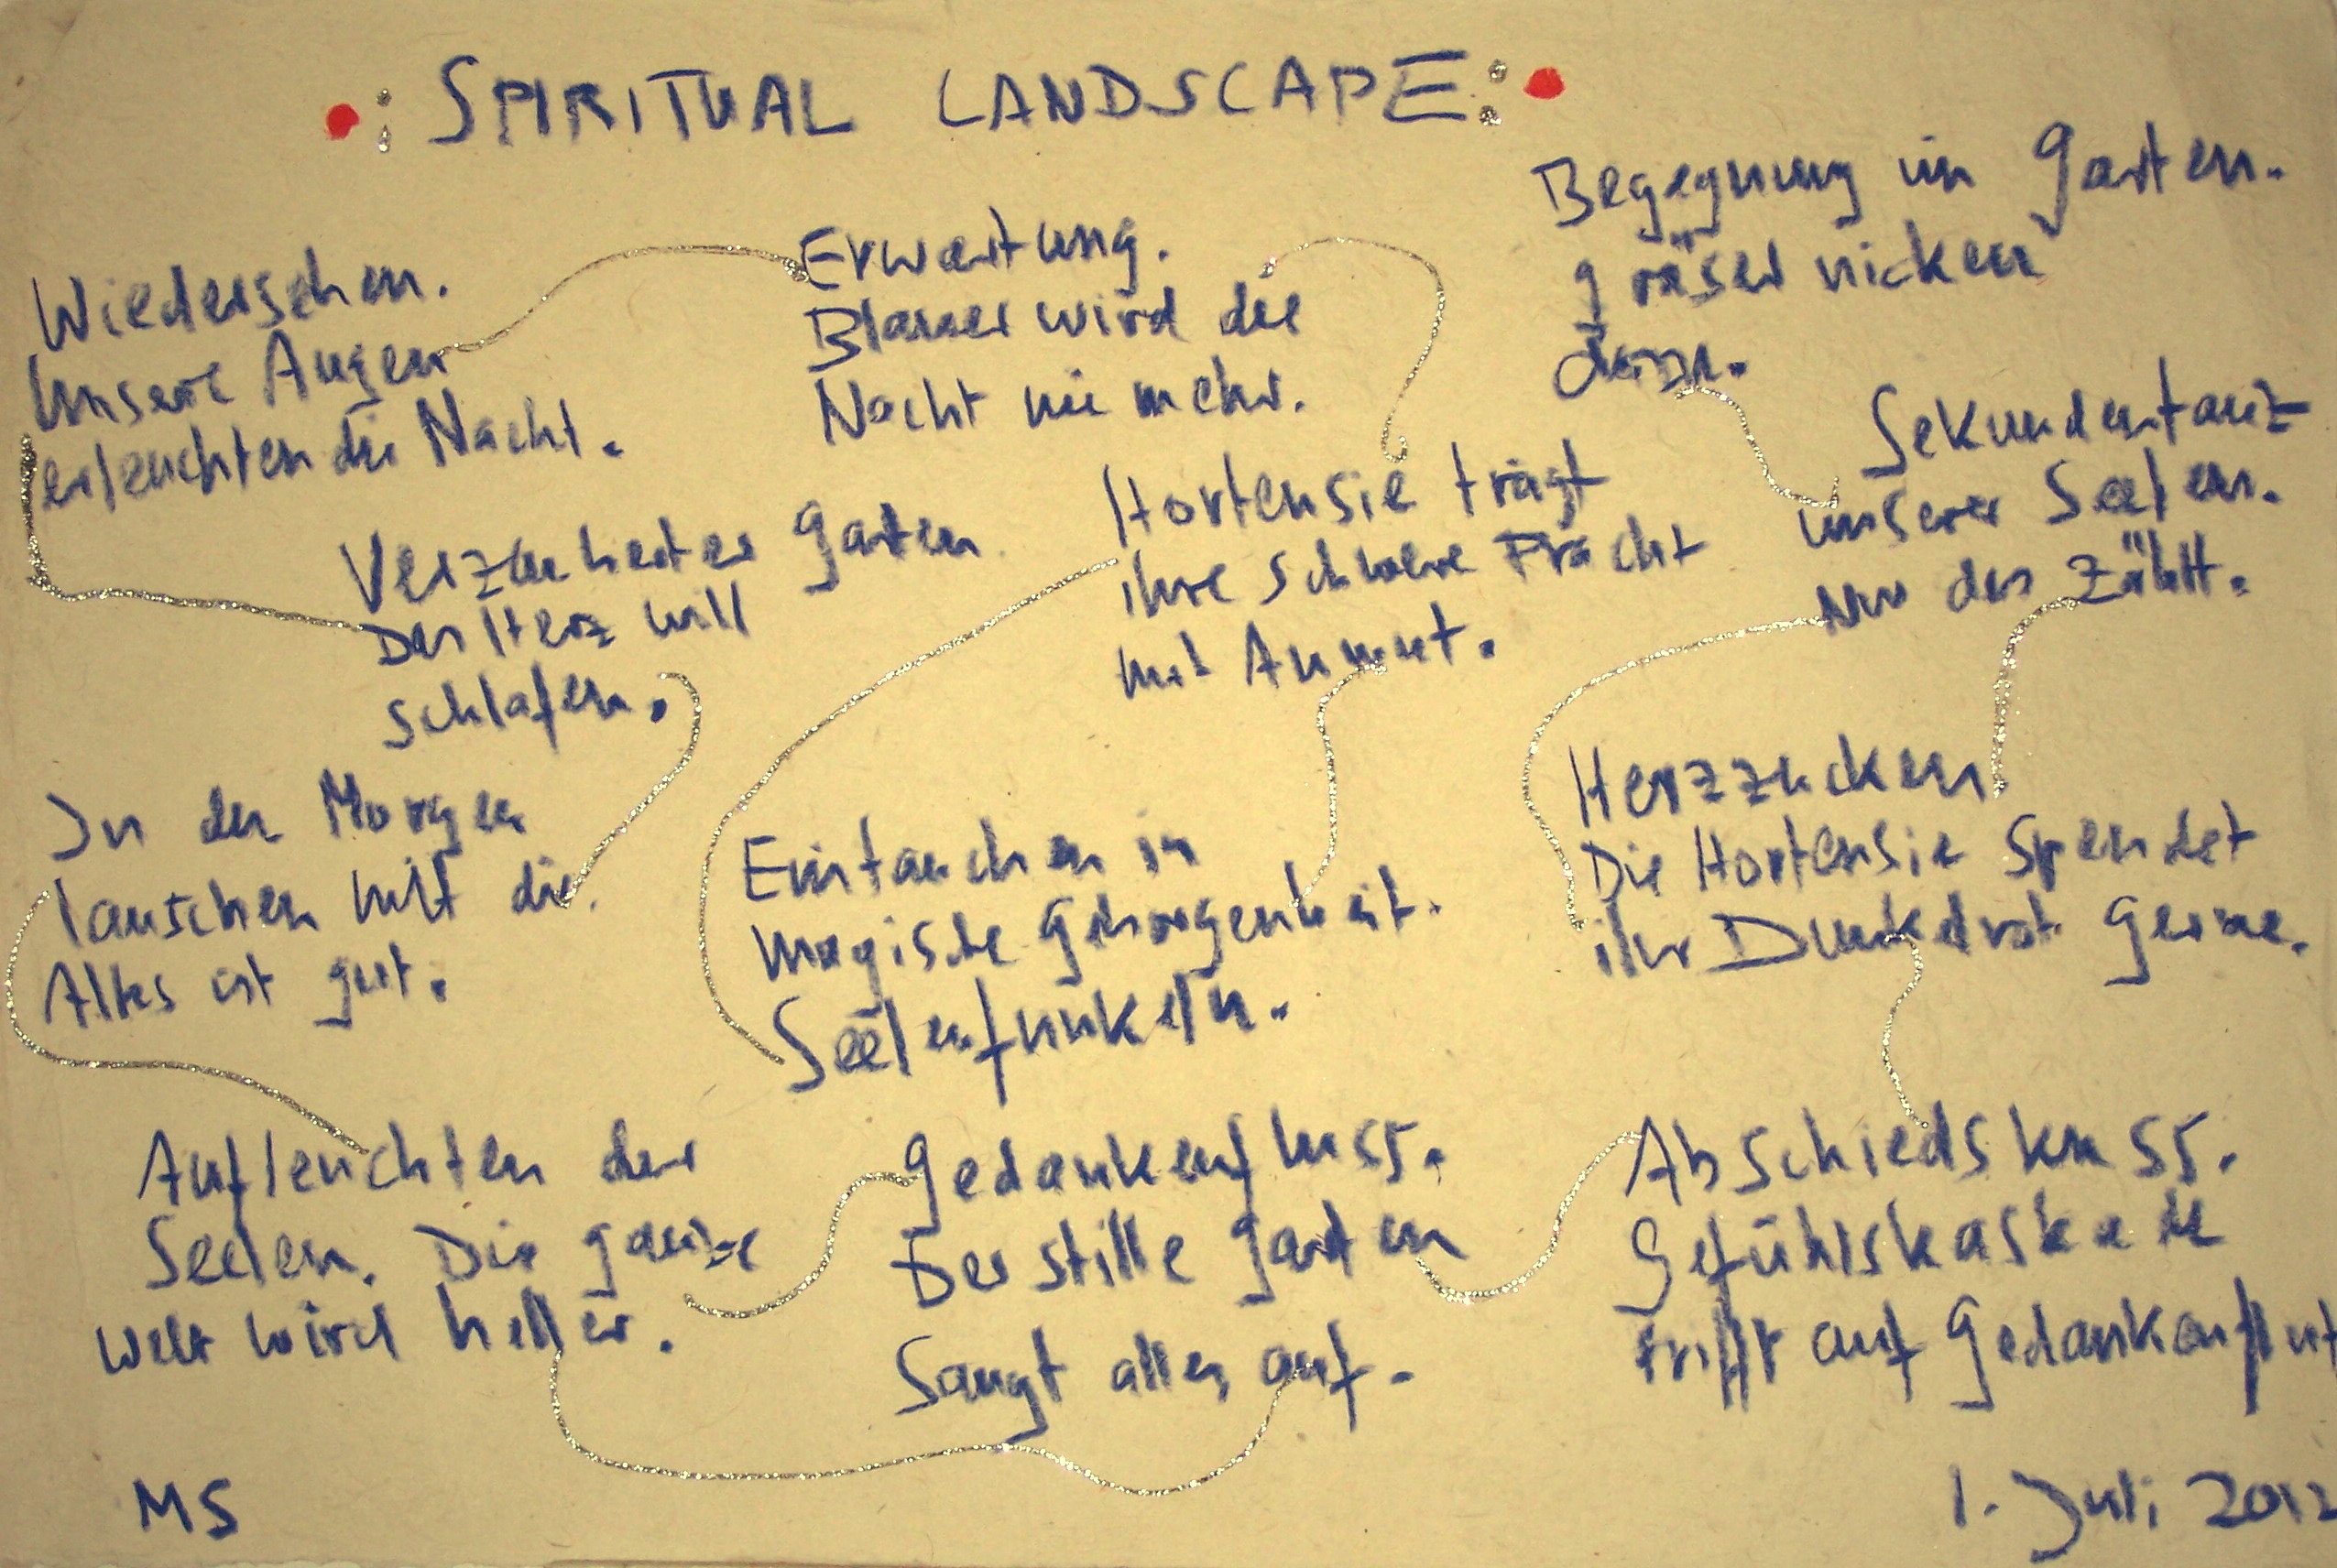 SPIRITUAL LANDSCAPE
Wiedersehen.
Unsere Augen
erleuchten die Nacht.
Erwartung.
Blauer wird die
Nacht nie mehr.
Begegnung im Garten.
Gräser nicken
dazu.
Verzauberter Garten
Das Herz will
schlafen.
Hortensie trägt
ihre schwere Pracht
mit Anmut.
Sekundentanz
unserer Seelen.
Nur das zählt.
In den Morgen
lauschen mit dir.
Alles ist gut.
Eintauchen in
magische Geborgenheit.
Seelenfunkeln.
Herzzucken
Die Hortensie spendet
ihr Dunkelrot gerne.
Aufleuchten der
Seelen. Die ganze
Welt wird heller.
Gedankenfluss.
Der stille Garten
Saugt alles auf.
Abschiedskuss.
Gefühlskaskade
trifft auf Gedankenflut
MS
1. Juli 2012